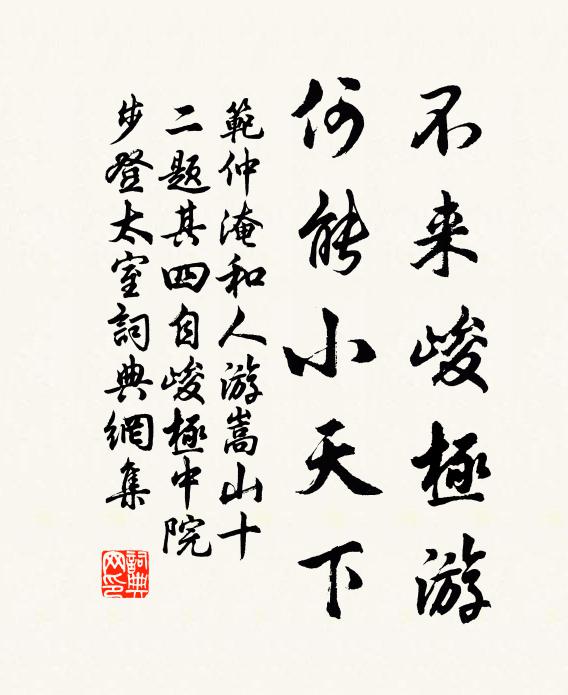 不来峻極游
何能小天下
範仲淹和人游嵩山十
二题其四自峻極中院
步登太室詞典網集
詞典
网印